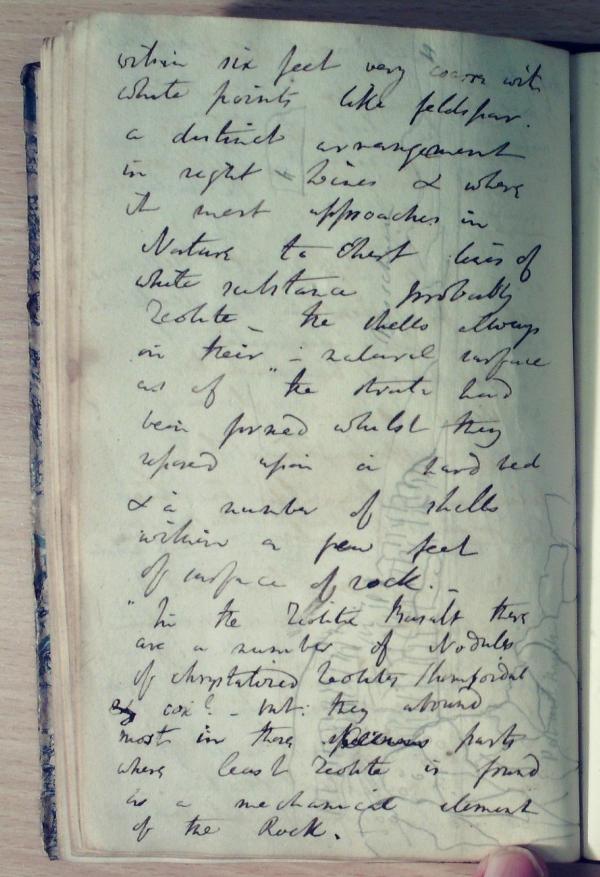 within six feet very coarse with
white points like feldspar.
a distinct arrangement
in right lines & where
it most approaches in
Nature to Chert lines of
white substance probably
Zeolite _ the shells always
on their natural surface
as if the strata had
been formed whilst they
reposed upon a hard bed
& a number of shells
within a few feet
of surface of rock. _
"In the Zeolitic Basalt there
are a number of Nodules
of chrystalized Zeolites rhomboidal
_ but they abound
most in those parts
where least Zeolite is found
as a mechanical element
of the Rock.